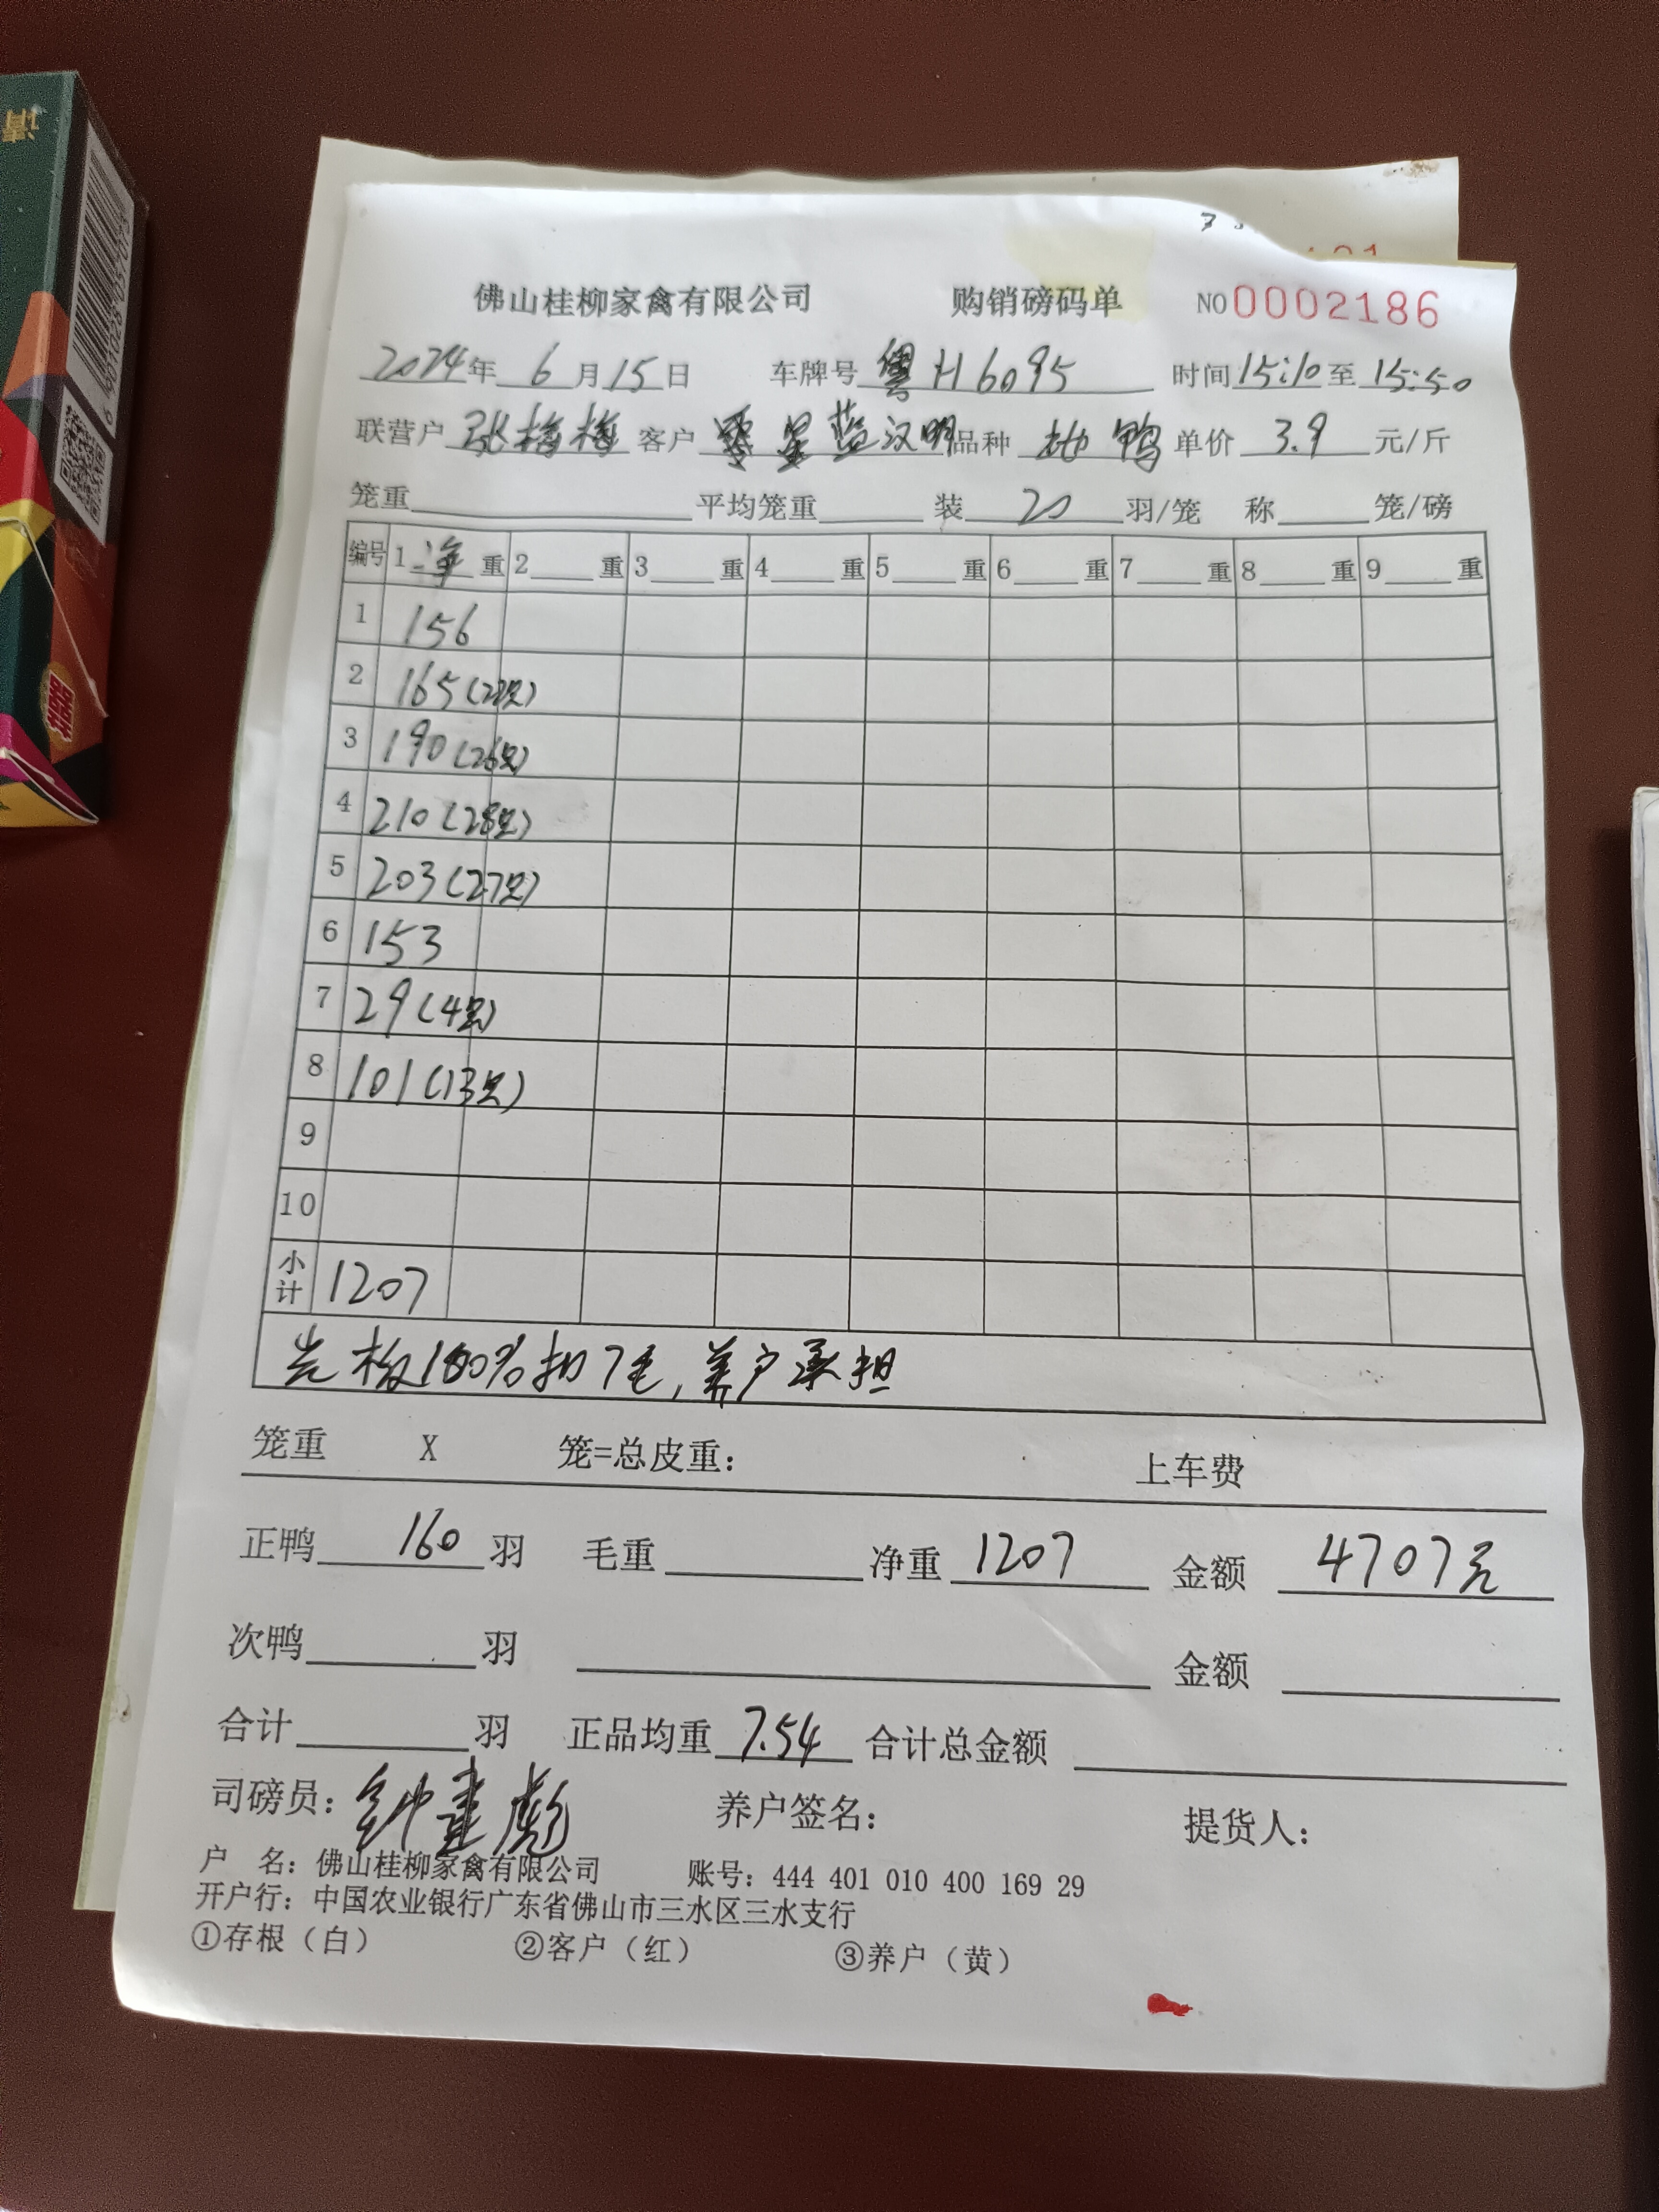 佛山桂柳家禽有限公司 购销磅码单 NO 0002186
2024年 6月15日 车牌号 粤H6095 时间15:10至15:50
联营户 张梅梅 客户 零星蓝汉明 品种 鸭 单价 3.9 元/斤
笼重 平均笼重 装 20 羽/笼 称 笼/磅
编号 1 净 重 2 重 3 重 4 重 5 重 6 重 7 重 8 重 9 重
1 156
2 165(22只)
3 190(26只)
4 210(28只)
5 203(27只)
6 153
7 29(4只)
8 101(13只)
9
10
小计 1207
光板100%扣7毛,养户承担
笼重 X 笼=总皮重: 上车费
正鸭 160 羽 毛重 净重 1207 金额 4707元
次鸭 羽 金额
合计 羽 正品均重 7.54 合计总金额
司磅员: 钟建彪 养户签名: 提货人:
户 名: 佛山桂柳家禽有限公司 账号: 444 401 010 400 169 29
开户行: 中国农业银行广东省佛山市三水区三水支行
①存根(白) ②客户(红) ③养户(黄)